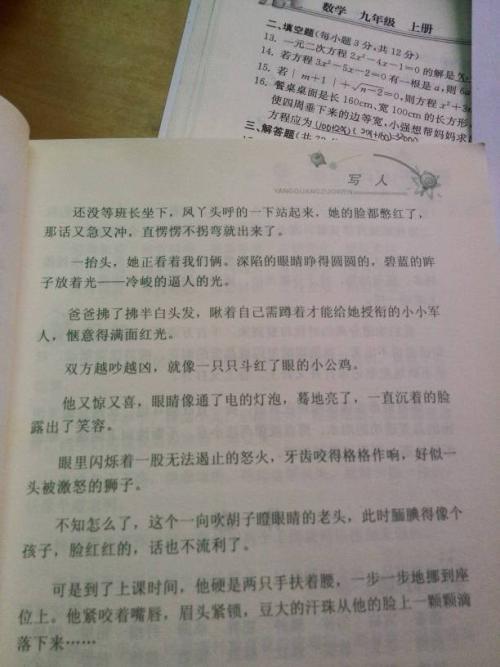 数学 九年级 上册
二、填空题(每小题3分,共12分)
13. 一元二次方程2x²-4x-1=0的解是
14. 若方程3x²-5x-2=0有一根是a,则6a
15. 若|m+1|+√n-2=0,则方程x²+3
16. 餐桌桌面是长160cm、宽100cm的长方形
使四周垂下来的边等宽,小强想帮妈妈求
方程应为
三、解答题(共
写 人
还没等班长坐下,凤丫头呼的一下站起来,她的脸都憋红了,
那话又急又冲,直愣愣不拐弯就出来了。
一抬头,她正看着我们俩。深陷的眼睛睁得圆圆的,碧蓝的眸
子放着光——冷峻的逼人的光。
爸爸拂了拂半白头发,瞅着自己需蹲着才能给她授衔的小小军
人,惬意得满面红光。
双方越吵越凶,就像一只只斗红了眼的小公鸡。
他又惊又喜,眼睛像通了电的灯泡,蓦地亮了,一直沉着的脸
露出了笑容。
眼里闪烁着一股无法遏止的怒火,牙齿咬得格格作响,好似一
头被激怒的狮子。
不知怎么了,这个一向吹胡子瞪眼睛的老头,此时腼腆得像个
孩子,脸红红的,话也不流利了。
可是到了上课时间,他硬是两只手扶着腰,一步一步地挪到座
位上。他紧咬着嘴唇,眉头紧锁,豆大的汗珠从他的脸上一颗颗滴
落下来……